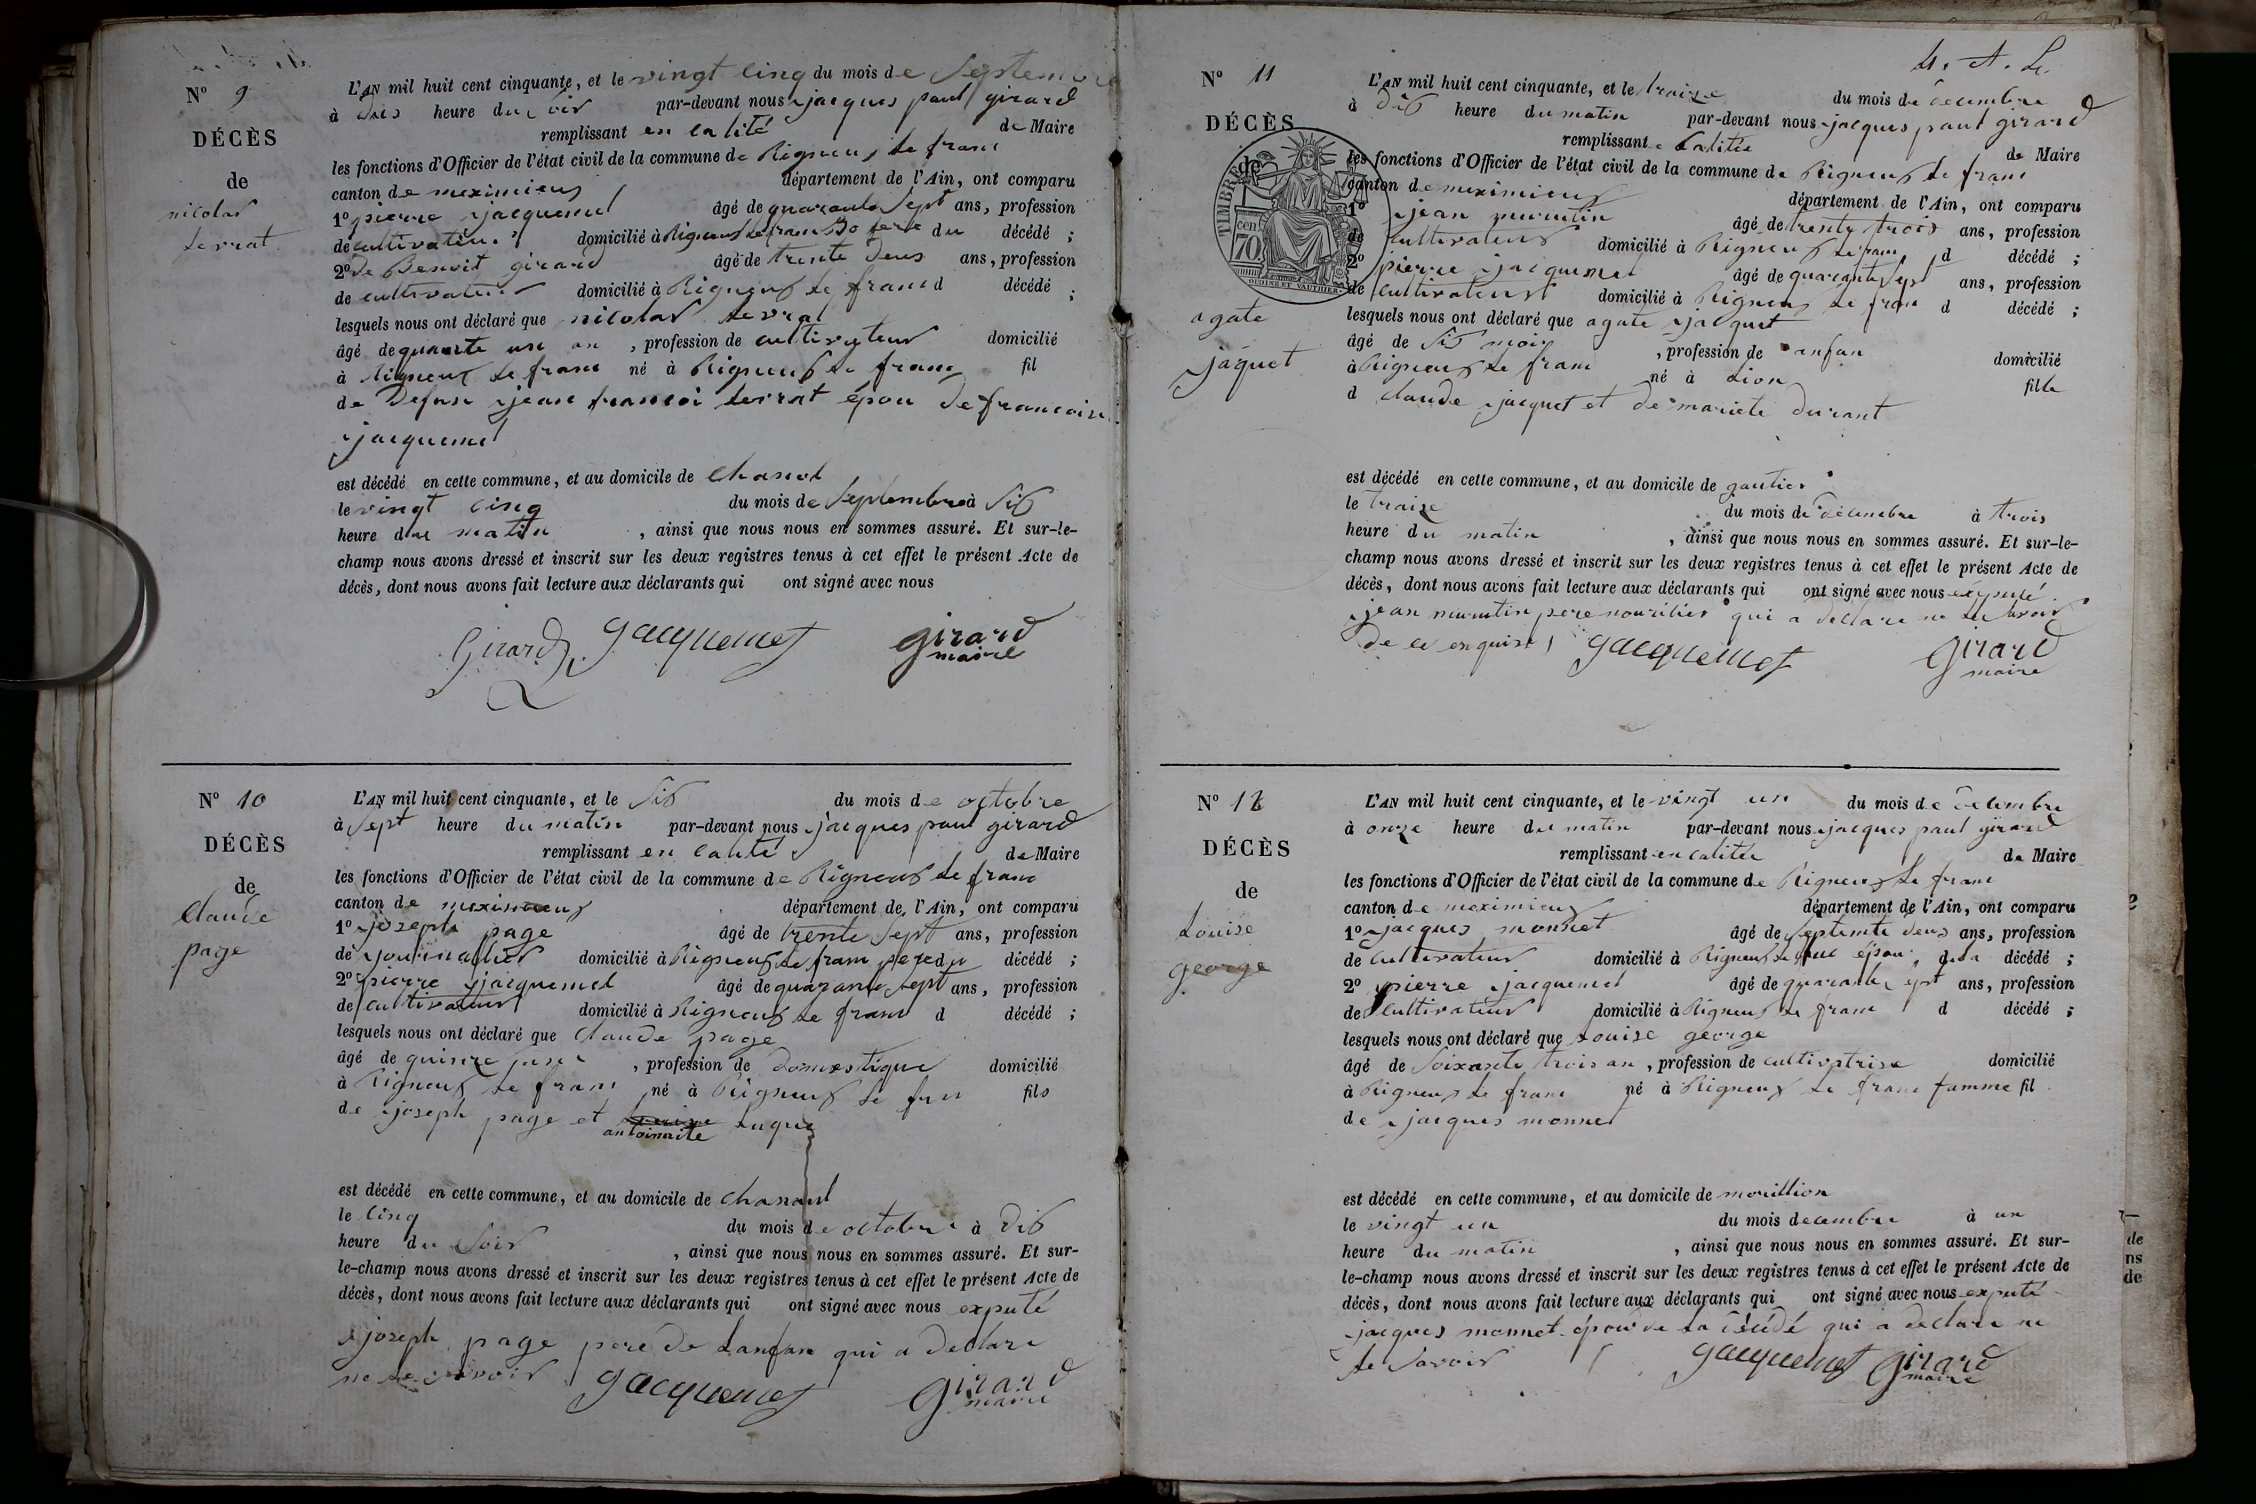 N° 9
DÉCÈS
de
nicolas
serrat
L'AN mil huit cent cinquante, et le vingt cinq du mois de septembre
à heure du soir par-devant nous jacques paul girard
remplissant en calité de Maire
les fonctions d'Officier de l'état civil de la commune de Rigneux le franc
canton de meximieux département de l'Ain, ont comparu
1° pierre jacquemet âgé de quarante sept ans, profession
de cultivateur domicilié à Rigneux le franc du décédé ;
2° de Benoit girard âgé de trente deus ans, profession
de cultivateur domicilié à Rigneux le franc d décédé ;
lesquels nous ont déclaré que nicolas serrat
âgé de quarante un an , profession de cultivateur domicilié
à Rigneux le franc né à Rigneux le franc fil
de Defun jean francoi serrat épou de francoise
jacquemet
est décédé en cette commune, et au domicile de Chanod
le vingt cinq du mois de septembre à six
heure du matin , ainsi que nous nous en sommes assuré. Et sur-le-
champ nous avons dressé et inscrit sur les deux registres tenus à cet effet le présent Acte de
décès, dont nous avons fait lecture aux déclarants qui ont signé avec nous
Girard jacquemet girard
maire
N° 10
DÉCÈS
de
claude
page
L'AN mil huit cent cinquante, et le six du mois de octobre
à sept heure du matin par-devant nous jacques paul girard
remplissant en calité de Maire
les fonctions d'Officier de l'état civil de la commune de Rigneux le franc
canton de meximieux département de l'Ain, ont comparu
1° joseph page âgé de trente sept ans, profession
de journallier domicilié à Rigneux le franc pere du décédé ;
2° pierre jacquemet âgé de quarante sept ans, profession
de cultivateur domicilié à Rigneux le franc d décédé ;
lesquels nous ont déclaré que claude page
âgé de quinze , profession de domestique domicilié
à Rigneux le franc né à Rigneux le franc fils
de joseph page et antoinaite luque
est décédé en cette commune, et au domicile de Chanod
le cinq du mois de octobre à dix
heure du soir , ainsi que nous nous en sommes assuré. Et sur-
le-champ nous avons dressé et inscrit sur les deux registres tenus à cet effet le présent Acte de
décès, dont nous avons fait lecture aux déclarants qui ont signé avec nous exputé
joseph page pere de lanfan qui a declare
ne le savoir jacquemet girard
maire
N° 11
DÉCÈS
de
agate
jaquet
TIMBRE
70 cent
OUDINE ET VAUTHIER
L'AN mil huit cent cinquante, et le traize du mois de decembre
à dix heure du matin par-devant nous jacques paul girard
remplissant calitée de Maire
les fonctions d'Officier de l'état civil de la commune de Rigneux le franc
canton de meximieux département de l'Ain, ont comparu
1° jean mumtin âgé de trente trois ans, profession
de cultivateur domicilié à Rigneux le franc d décédé ;
2° pierre jacquemet âgé de quarante sept ans, profession
de cultivateur domicilié à Rigneux le franc d décédé ;
lesquels nous ont déclaré que agate jacquet
âgé de six mois , profession de anfan domicilié
à Rigneux le franc né à Lion fille
d claude jacquet et de mariete durant
est décédé en cette commune, et au domicile de gautier
le traize du mois de decembre à trois
heure du matin , ainsi que nous nous en sommes assuré. Et sur-le-
champ nous avons dressé et inscrit sur les deux registres tenus à cet effet le présent Acte de
décès, dont nous avons fait lecture aux déclarants qui ont signé avec nous exputé
jean mumtin pere nouricier qui a declare ne le savoir
de ce enquire jacquemet girard
maire
N° 12
DÉCÈS
de
Louise
george
L'AN mil huit cent cinquante, et le vingt un du mois de decembre
à onze heure du matin par-devant nous jacques paul girard
remplissant en calitée de Maire
les fonctions d'Officier de l'état civil de la commune de Rigneux le franc
canton de meximieux département de l'Ain, ont comparu
1° jacques monnet âgé de septente deus ans, profession
de cultivateur domicilié à Rigneux le franc épou de la décédé ;
2° pierre jacquemet âgé de quarante sept ans, profession
de cultivateur domicilié à Rigneux le franc d décédé ;
lesquels nous ont déclaré que Louise george
âgé de soixante trois an , profession de cultivatrise domicilié
à Rigneux le franc né à Rigneux le franc famme fil
de jacques monnet
est décédé en cette commune, et au domicile de mouillion
le vingt un du mois decembre à un
heure du matin , ainsi que nous nous en sommes assuré. Et sur-
le-champ nous avons dressé et inscrit sur les deux registres tenus à cet effet le présent Acte de
décès, dont nous avons fait lecture aux déclarants qui ont signé avec nous exputé
jacques monnet épou de la décédé qui a declare ne
le savoir jacquemet girard
maire